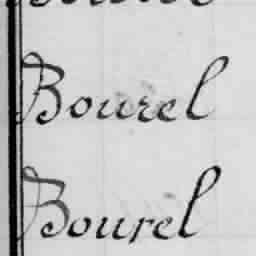 Bourel
Bourel